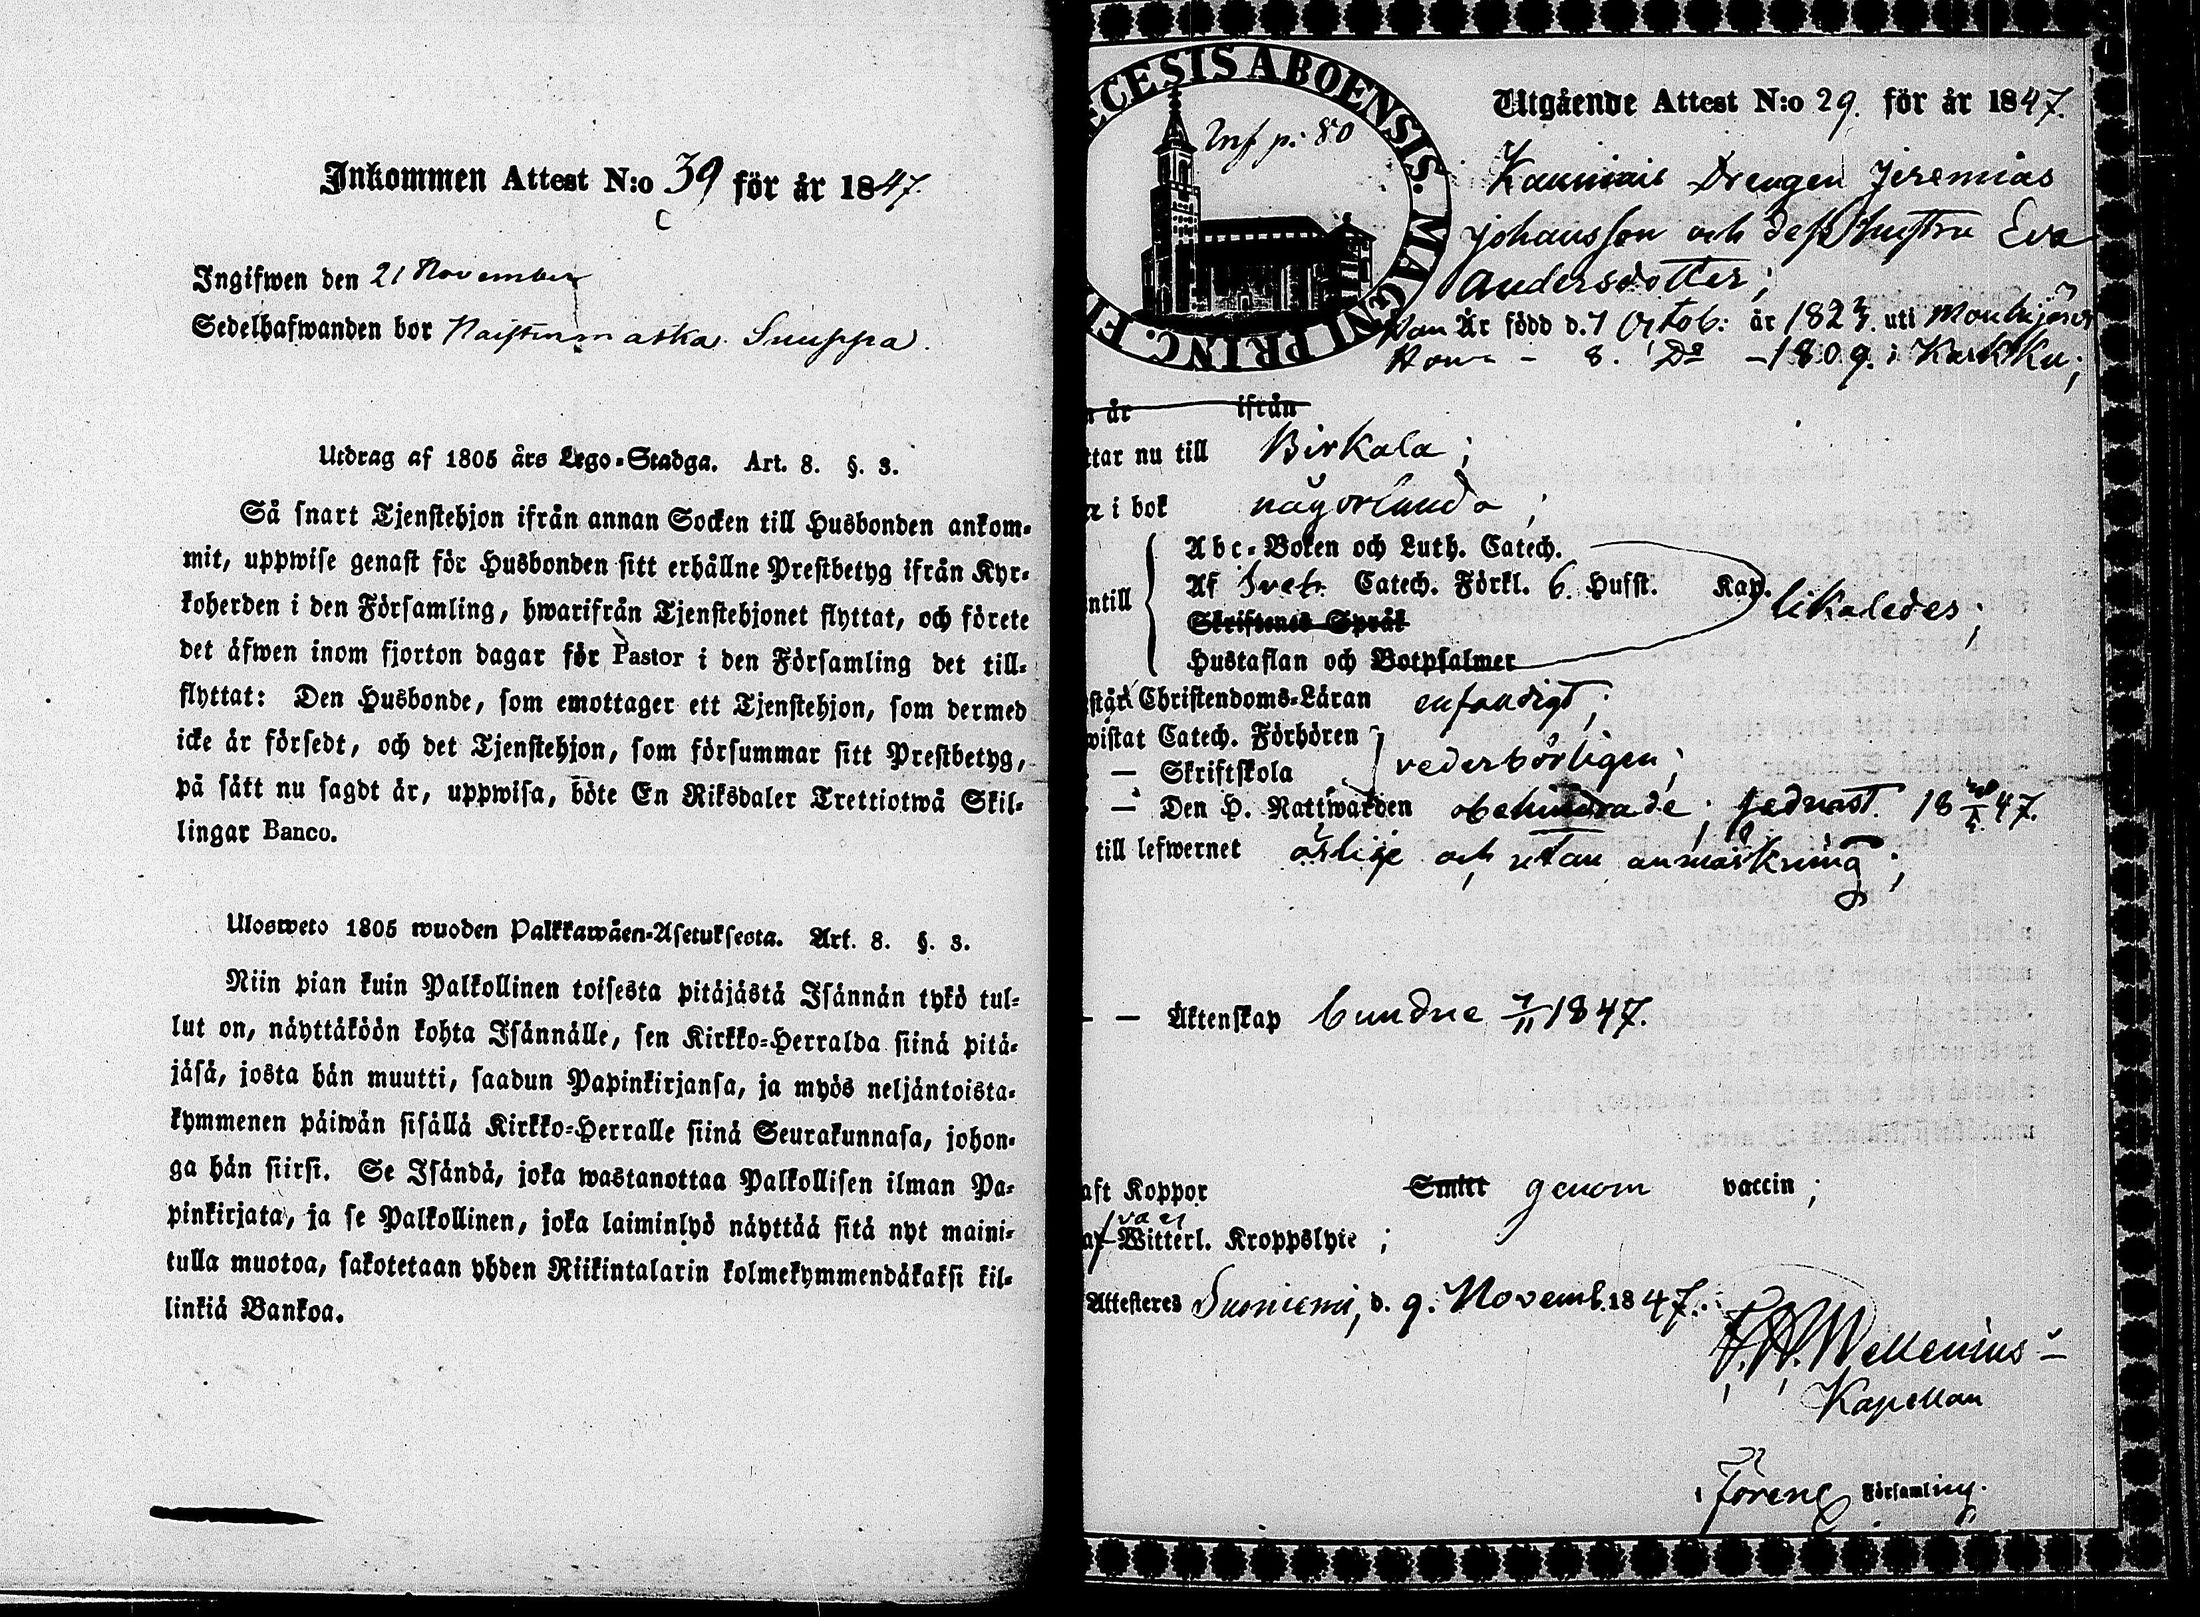 Inkommen Attest N:o 39 för år 1847.
Ingifwen den 21 November
Sedelhafwanden bor Naistenmatka Suuppa.
Utdrag af 1805 års Lego-Stadga. Art. 8. §. 3.
Så snart Tjenstehjon ifrån annan Socken till Husbonden ankom-
mit, uppwise genast för Husbonden sitt erhållne Prestbetyg ifrån Kyr-
koherden i den Församling, hwarifrån Tjenstehjonet flyttat, och förete
det äfwen inom fjorton dagar för Pastor i den Församling det till-
flyttat: Den Husbonde, som emottager ett Tjenstehjon, som dermed
icke är försedt, och det Tjenstehjon, som försummar sitt Prestbetyg,
på sätt nu sagdt är, uppwisa, böte En Riksdaler Trettiotwå Skil-
lingar Banco.
Ulosweto 1805 wuoden Palkkawäen-Asetuksesta. Art. 8. §. 3.
Niin pian kuin Palkollinen toisesta pitäjästä Isännän tykö tul-
lut on, näyttäköön kohta Isännälle, sen Kirkko-Herralda siinä pitä-
jäsä, josta hän muutti, saadun Papinkirjansa, ja myös neljäntoista-
kymmenen päiwän sisällä Kirkko-Herralle siinä Seurakunnasa, johon-
ga hän siirsi. Se Isändä, joka wastanottaa Palkollisen ilman Pa-
pinkirjata, ja se Palkollinen, joka laiminlyö näyttää sitä nyt maini-
tulla muotoa, sakotetaan yhden Riikintalarin kolmekymmendäkaksi kil-
linkiä Bankoa.
ECESIS ABOENSIS. MAGNI PRINC. FI
Inf p: 80
Utgående Attest N:o 29. för år 1847.
Drengen Jeremias
Johansson och dess Hustru Eva
Andersdotter;
Han Är född d. 7 Octob: år 1823. uti Mouhijärvi
Hon - 8. Do - 1809. i Karkku;
n är ifrån
ttar nu till Birkala;
r i bok någorlunda;
ntill
Abc-Boken och Luth. Catech.
Af Sveb. Catech. Förkl. 6. Husst. Kap. likaledes;
Skriftenes Språk
Hustaflan och Botpsalmer
står Christendoms-Läran enfaldigt;
wistat Catech. Förhören
— Skriftskola vederbörligen;
— Den H. Nattwarden obehindrade; sednast 18 47.
till lefwernet ärlige och utan anmärkning;
— — Äktenskap bundne 7/11 1847.
aft Koppor Smitt genom vaccin;
af Witterl. Kroppslyte;
Attesteres Suoniemi, d. 9. Novemb. 1847.
Mellenius
Kapellan
i Föreng Församling.